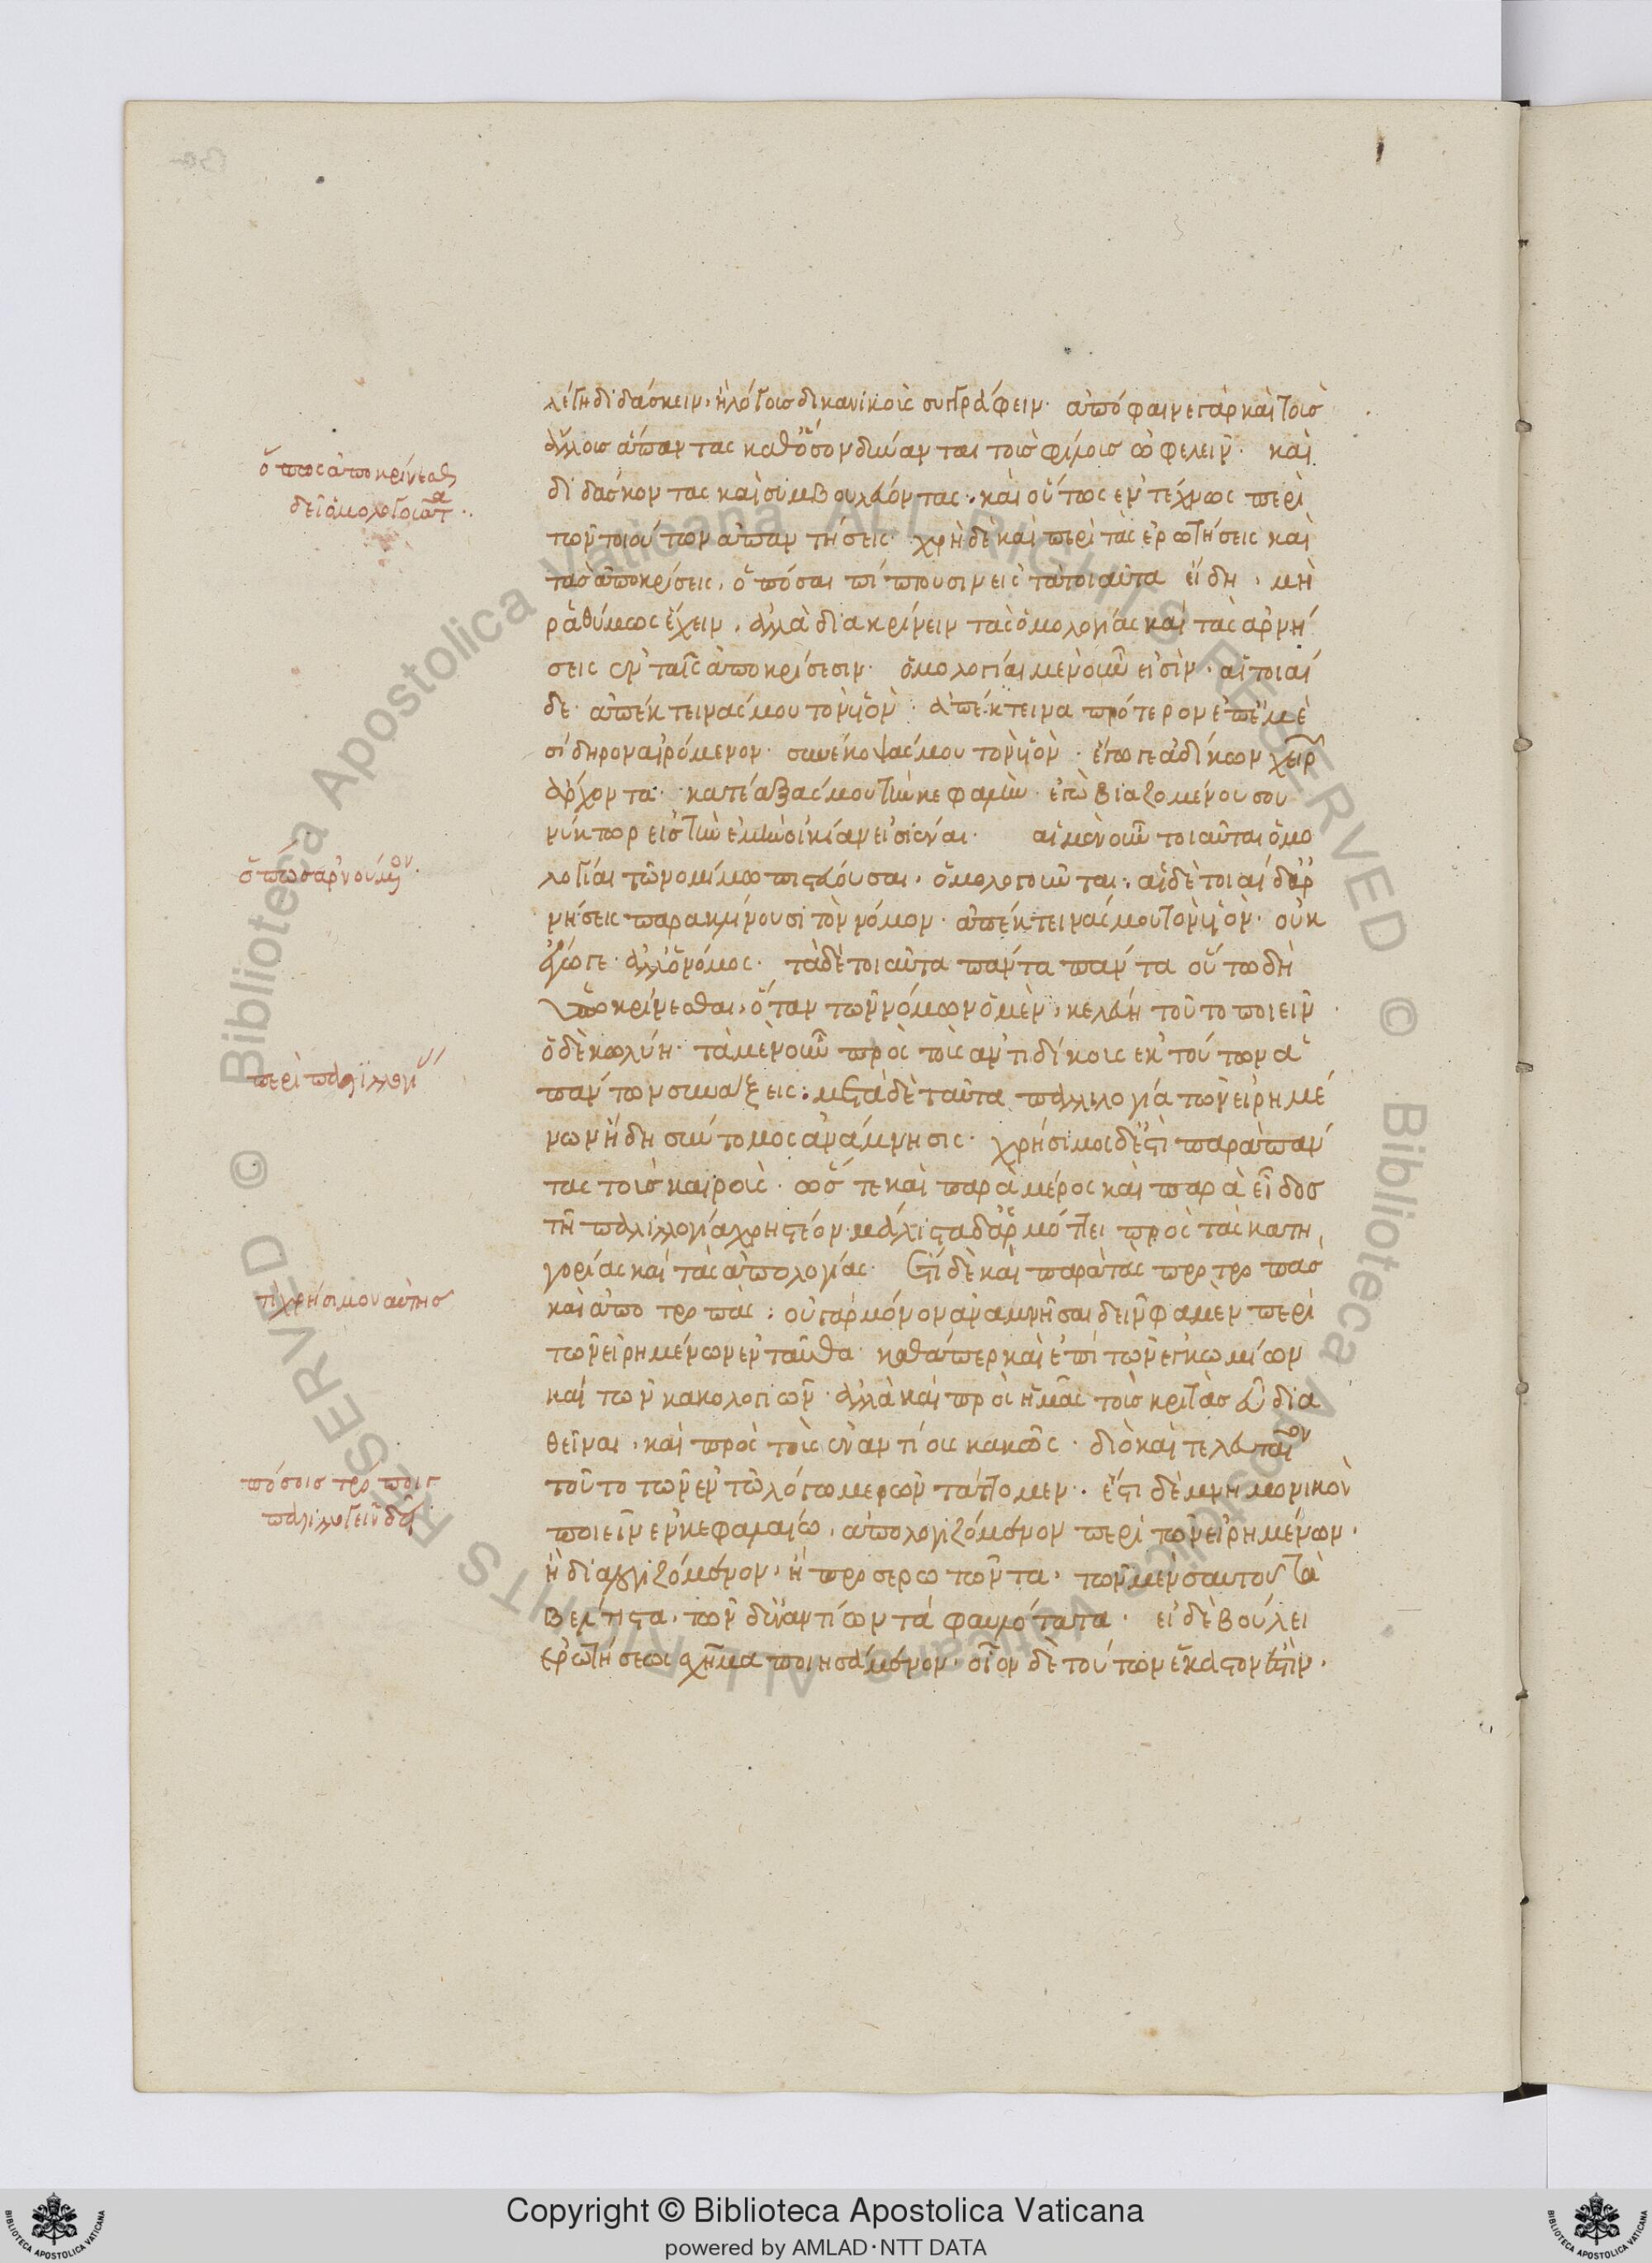 λέγη διδάσκειν, ἢ λόγοις δικανικοὺς συγγράφειν· ἀπόφαινε γὰρ καὶ τοὺς
ἄλλους ἅπαντας καθ' ὅσον δύνανται τοὺς φίλους ὠφελεῖν· καὶ
διδάσκοντας καὶ συμβουλεύοντας· καὶ οὕτως ἐντέχνως περὶ
τῶν τοιούτων ἀπαντήσεις· χρὴ δὲ καὶ περὶ τὰς ἐρωτήσεις καὶ
τὰς ἀποκρίσεις, ὁπόσαι πίπτουσιν εἰς τὰ τοιαῦτα εἴδη, μὴ
ῥαθύμως ἔχειν, ἀλλὰ διακρίνειν τὰς ὁμολογίας καὶ τὰς ἀρνή
σεις ἐν ταῖς ἀποκρίσεσιν· ὁμολογίαι μὲν οὖν εἰσὶν, αἱ τοιαί
δε· ἀπέκτεινάς μου τὸν υἱόν· ἀπέκτεινα πρότερον ἐπ' ἐμὲ
σίδηρον αἰρόμενον· συνέκοψάς μου τὸν υἱόν· ἔγωγε ἀδίκων χειρῶν
ἄρχοντα· κατέαξάς μου τὴν κεφαλὴν· ἐγὼ βιαζομένου σου
νύκτωρ εἰς τὴν ἐμὴν οἰκίαν εἰσιέναι· αἱ μὲν οὖν τοιαῦται ὁμο
λογίαι τῶ νομίμω πιστεύουσαι, ὁμολογοῦνται· αἱ δὲ τοιαίδ' ἀρ
νήσεις παρακλίνουσι τὸν νόμον· ἀπέκτεινάς μου τὸν υἱόν· οὐκ
ἔγωγε ἀλλ' ὁ νόμος· τὰ δὲ τοιαῦτα πάντα πάντα οὕτω δὴ
ὑποκρίνεσθαι, ὅταν τῶν νόμων ὁ μὲν, κελεύη τοῦτο ποιεῖν
ὁ δὲ κωλύη· τὰ μὲν οὖν πρὸς τοὺς ἀντιδίκους ἐκ τούτων ἁ
πάντων συνάξεις· μετὰ δὲ ταῦτα παλιλογία τῶν εἰρημέ
νων ἤδη σύντομος ἀνάμνησις· χρήσιμος δέ ἐστι παρὰ πάν
τας τοὺς καιροὺς· ὥστε καὶ παρὰ μέρος καὶ παρὰ εἶδος
τῆ παλιλλογία χρηστέον· μάλιστα δ' ἁρμόττει πρὸς τὰς κατη
γορίας καὶ τὰς ἀπολογίας· ἔτι δὲ καὶ παρὰ τὰς προτροπὰς
καὶ ἀποτροπάς· οὐ γὰρ μόνον ἀναμνῆσαι δεῖν φαμὲν περὶ
τῶν εἰρημένων ἐνταῦθα· καθάπερ καὶ ἐπὶ τῶν ἐγκωμίων
καὶ τῶν κακολογιῶν· ἀλλὰ καὶ πρὸς ἡμᾶς τοὺς κριτὰς εὖ δια
θεῖναι, καὶ πρὸς τοὺς ἐναντίους κακῶς· διὸ καὶ τελευταῖον
τοῦτο τῶν ἐν τῶ λόγω μερῶν τάττομεν. ἔστι δὲ μνημονικὸν
ποιεῖν ἐν κεφαλαίω, ἀπολογιζόμενον περὶ τῶν εἰρημένων·
ἢ διαλογιζόμενον, ἢ προσερωτῶντα, τῶν μὲν σαυτοῦ τὰ
βέλτιστα, τῶν δ' ἐναντίων τὰ φαυλότατα· εἰ δὲ βούλει
ἐρωτήσεως σχῆμα ποιησάμενον· οἷον δὲ τούτων ἕκαστον ἐστὶν.
ὅπως ἀποκρίνεσθαι
δεῖ ὁμολογοῦντα
ὅπως ἀρνούμενον
περὶ παλιλλογίας
τί χρήσιμον αὐτῆς
πόσοις τρόποις
παλιλλογεῖν δεῖ
Copyright © Biblioteca Apostolica Vaticana
powered by AMLAD·NTT DATA